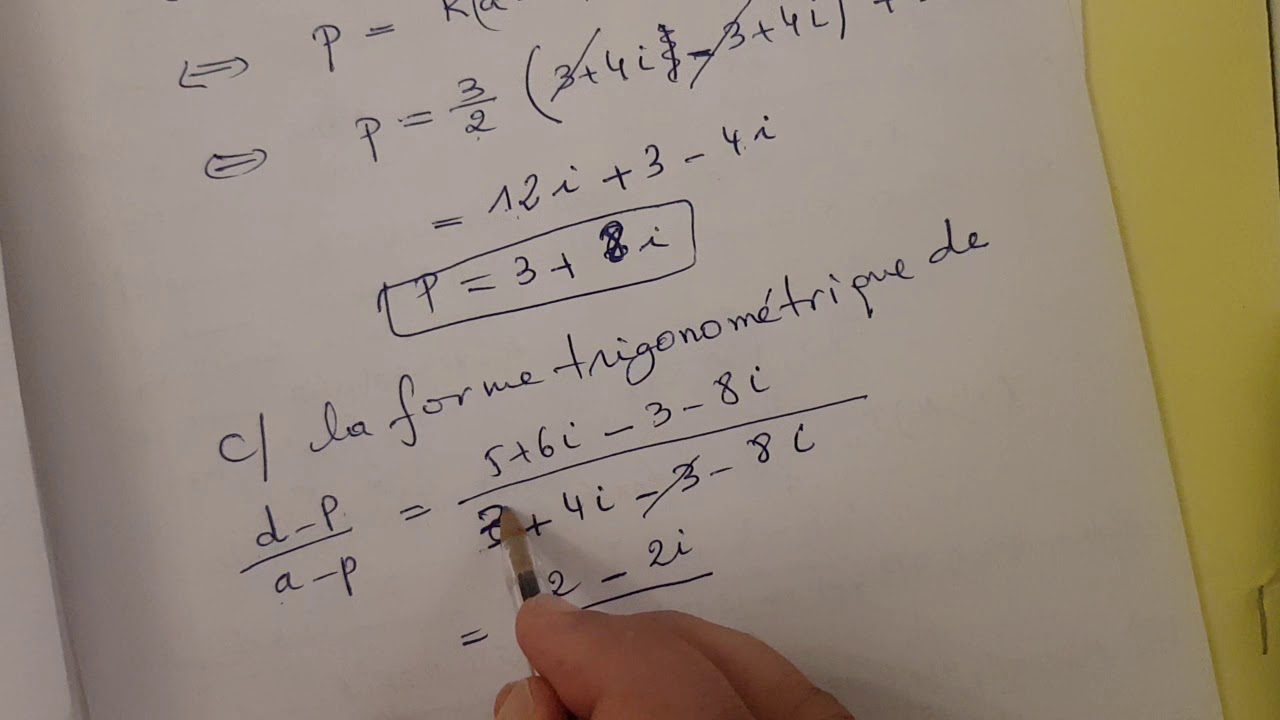 ⇔ P = k(a
⇔ P = 3/2 (3+4i - 3+4i) +
= 12i + 3 - 4i
P = 3 + 8i
c/ la forme trigonométrique de
d-P / a-p = 5+6i - 3 - 8i / 3 + 4i - 3 - 8i
= 2 - 2i